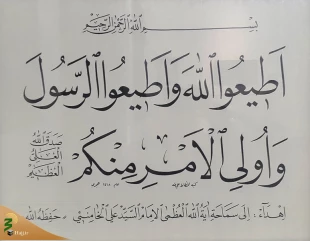 بسم الله الرحمن الرحيم
اَطيعُوا اللهَ وَاَطيعُوا الرَّسُولَ
وَاُولِي الْاَمْرِ مِنْكُمْ
صدق الله
العلي
العظيم
إهداء : إلى سماحة آية الله العظمى الإمام السيد علي الخامنئي - حفظه الله
Hajin